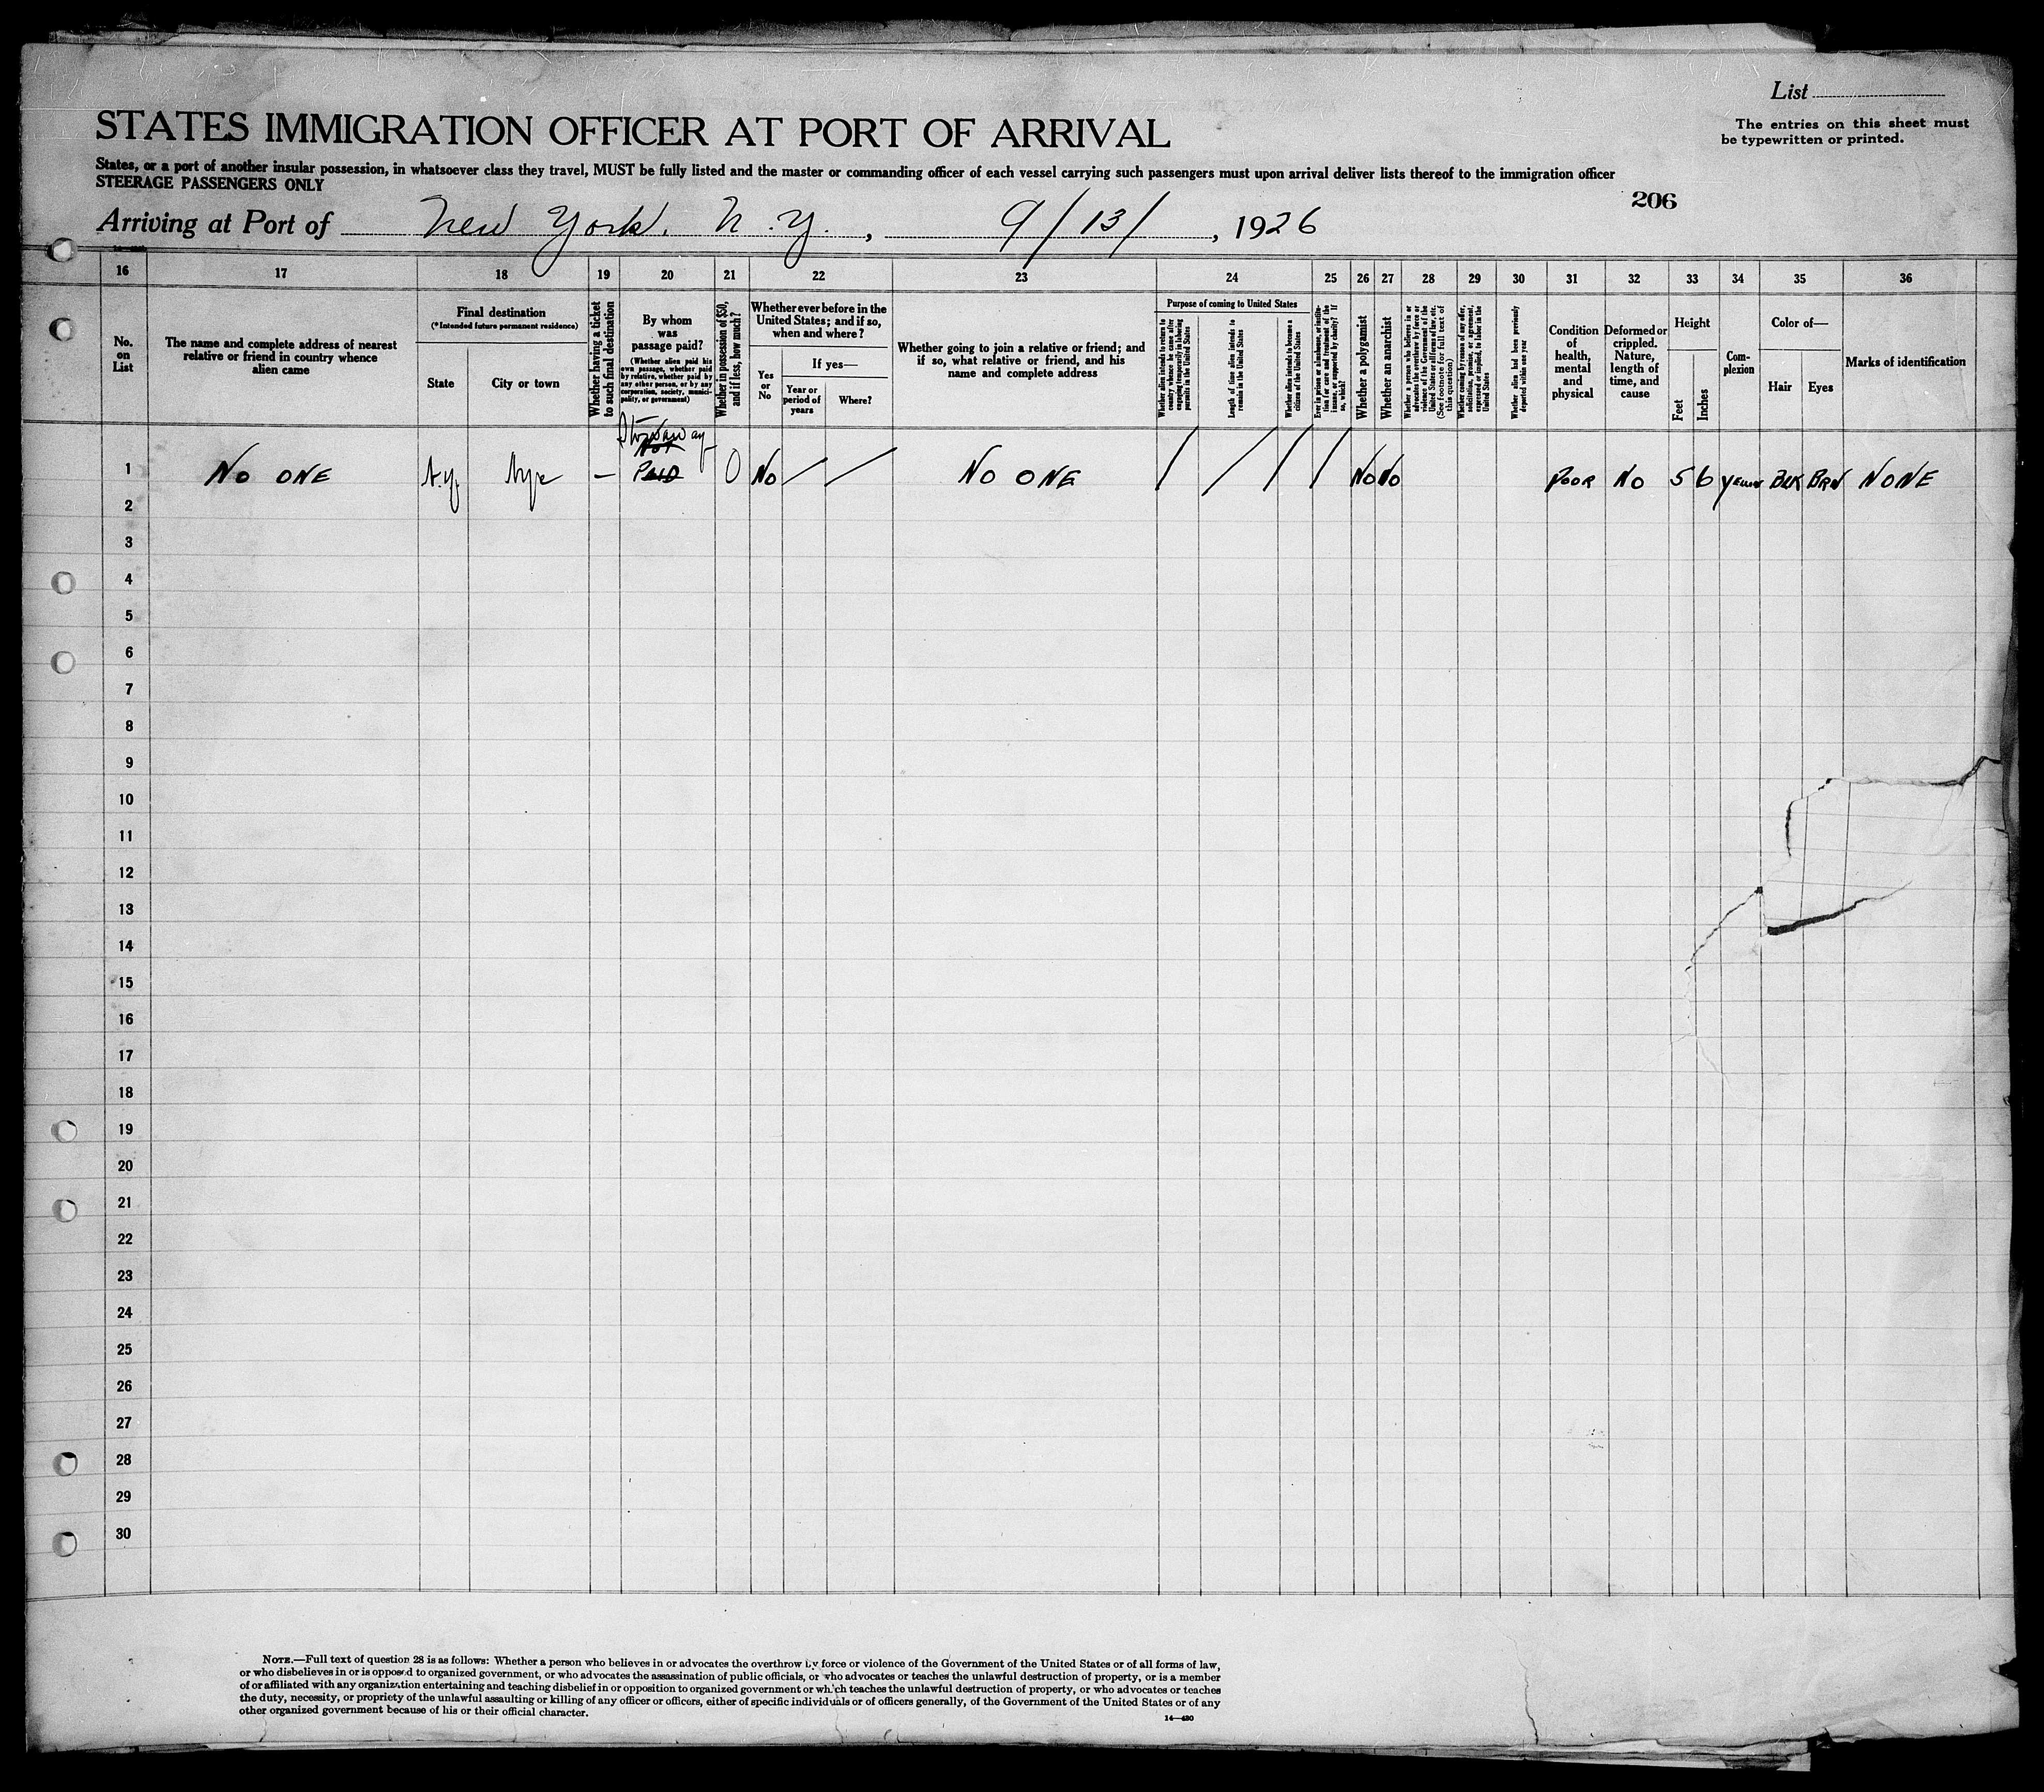 List
STATES IMMIGRATION OFFICER AT PORT OF ARRIVAL
The entries on this sheet must
be typewritten or printed.
States, or a port of another insular possession, in whatsoever class they travel, MUST be fully listed and the master or commanding officer of each vessel carrying such passengers must upon arrival deliver lists thereof to the immigration officer
STEERAGE PASSENGERS ONLY
206
Arriving at Port of New York, N.Y., 9/13/, 1926
16 17 18 19 20 21 22 23 24 25 26 27 28 29 30 31 32 33 34 35 36
No.
on
List
The name and complete address of nearest
relative or friend in country whence
alien came
Final destination
(*Intended future permanent residence)
State
City or town
Whether having a ticket
to such final destination
By whom
was
passage paid?
(Whether alien paid his
own passage, whether paid
by relative, whether paid by
any other person, or by any
corporation, society, munici-
pality, or government)
Whether in possession of $50,
and if less, how much?
Whether ever before in the
United States; and if so,
when and where?
If yes—
Yes
or
No
Year or
period of
years
Where?
Whether going to join a relative or friend; and
if so, what relative or friend, and his
name and complete address
Purpose of coming to United States
Whether alien intends to return to
country whence he came after
engaging temporarily in laboring
pursuits in the United States
Length of time alien intends to
remain in the United States
Whether alien intends to become a
citizen of the United States
Ever in prison or almshouse, or institu-
tion for care and treatment of the
insane, or supported by charity? If
so, which?
Whether a polygamist
Whether an anarchist
Whether a person who believes in or
advocates the overthrow by force or
violence of the Government of the
United States or all forms of law, etc.
(See footnote for full text of
this question)
Whether coming by reason of any offer,
solicitation, promise, or agreement,
expressed or implied, to labor in the
United States
Whether alien had been previously
deported within one year
Condition
of
health,
mental
and
physical
Deformed or
crippled.
Nature,
length of
time, and
cause
Height
Feet
Inches
Com-
plexion
Color of—
Hair
Eyes
Marks of identification
Stowaway
NOT
1 NO ONE N.Y. Nyc — PAID 0 No / / NO ONE / / / / No No POOR NO 5 6 YELLOW BLK BRN NONE
2
3
4
5
6
7
8
9
10
11
12
13
14
15
16
17
18
19
20
21
22
23
24
25
26
27
28
29
30
NOTE.—Full text of question 28 is as follows: Whether a person who believes in or advocates the overthrow by force or violence of the Government of the United States or of all forms of law,
or who disbelieves in or is opposed to organized government, or who advocates the assassination of public officials, or who advocates or teaches the unlawful destruction of property, or is a member
of or affiliated with any organization entertaining and teaching disbelief in or opposition to organized government or which teaches the unlawful destruction of property, or who advocates or teaches
the duty, necessity, or propriety of the unlawful assaulting or killing of any officer or officers, either of specific individuals or of officers generally, of the Government of the United States or of any
other organized government because of his or their official character.
14—430